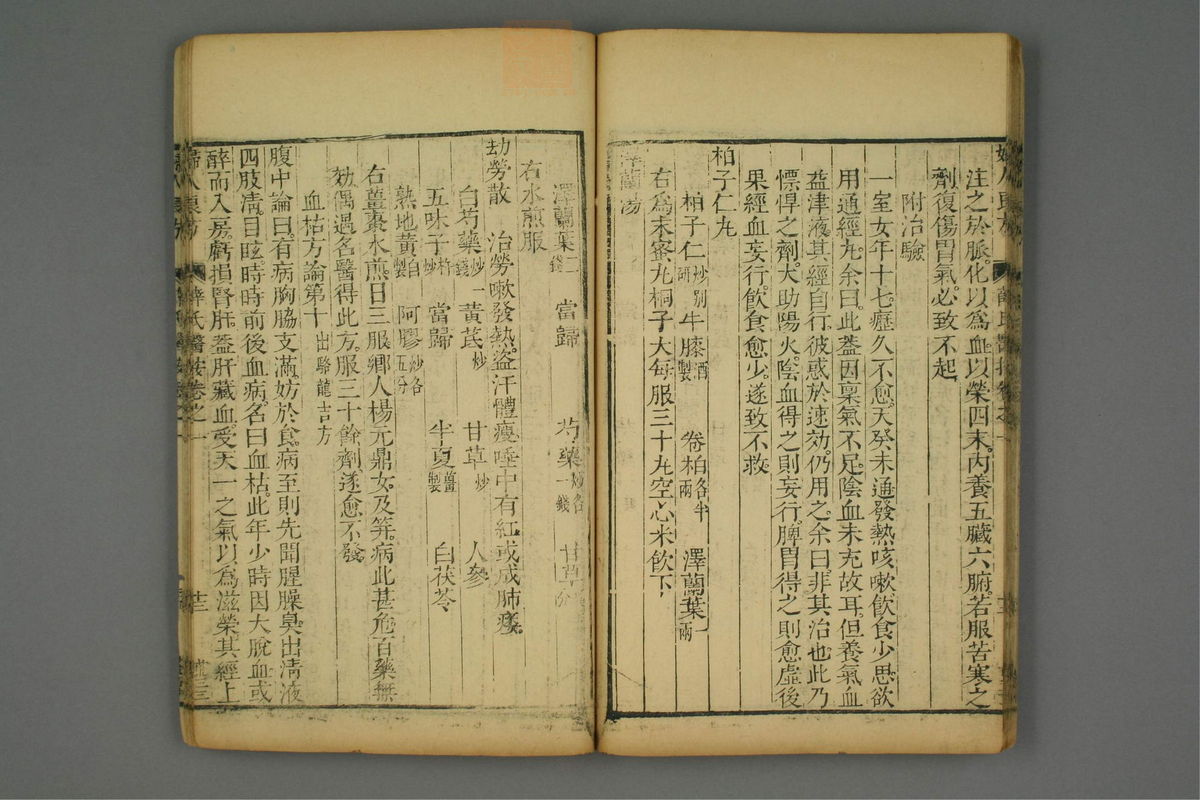 注之於脈化以爲血以榮四末內養五臟六腑若服苦寒之
劑復傷胃氣必致不起
附治驗
一室女年十七瘞久不愈天癸未通發熱咳嗽飲食少思欲
用通經丸余曰此蓋因稟氣不足陰血未充故耳但養氣血
益津液其經自行彼惑於速効仍用之余曰非其治也此乃
慓悍之劑大助陽火陰血得之則妄行脾胃得之則愈虛後
果經血妄行飲食愈少遂致不救
柏子仁丸
柏子仁炒別研 牛膝酒製 卷柏各半兩 澤蘭葉一兩
右爲末蜜丸桐子大每服三十丸空心米飲下
澤蘭湯
澤蘭葉二錢 當歸 芍藥炒各一錢 甘草
右水煎服
劫勞散 治勞嗽發熱盜汗體瘦唾中有紅或成肺痿
白芍藥炒一錢 黃芪炒 甘草炒 人參
五味子杵炒 當歸 半夏薑製 白茯苓
熟地黃自製 阿膠炒各五分
右薑棗水煎日三服鄉人楊元鼎女及笄病此甚危百藥無
効偶過名醫得此方服三十餘劑遂愈不發
血枯方論第十 出駱龍吉方
腹中論曰有病胸脇支滿妨於食病至則先聞腥臊臭出清液
四肢清目眩時時前後血病名曰血枯此年少時因大脫血或
醉而入房虧損腎肝蓋肝藏血受天一之氣以爲滋榮其經上
婦人良方
薛氏醫按卷之一